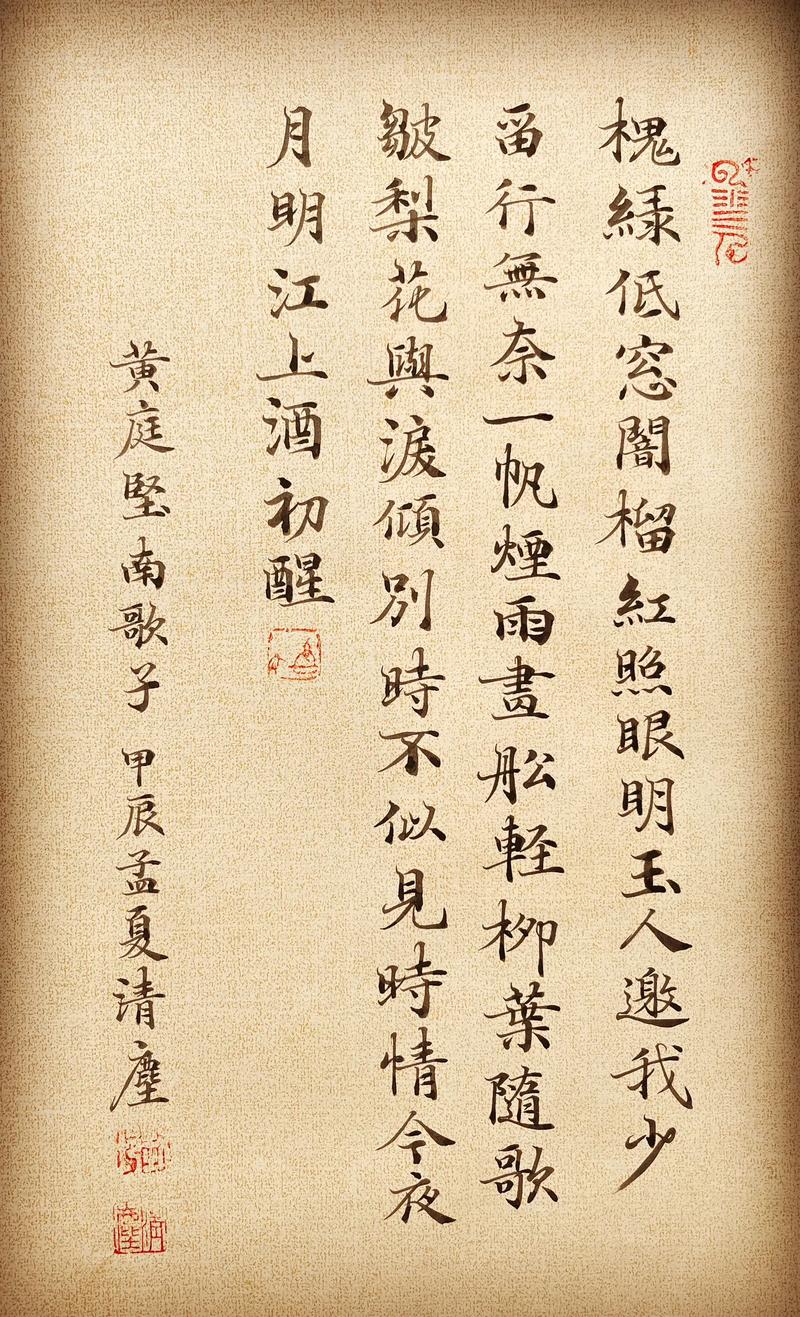 槐緑低窓闇榴紅照眼明玉人邀我少
留行無奈一帆煙雨畫舩軽柳葉隨歌
皺梨花與淚傾別時不似見時情今夜
月明江上酒初醒
黄庭堅南歌子 甲辰孟夏清塵